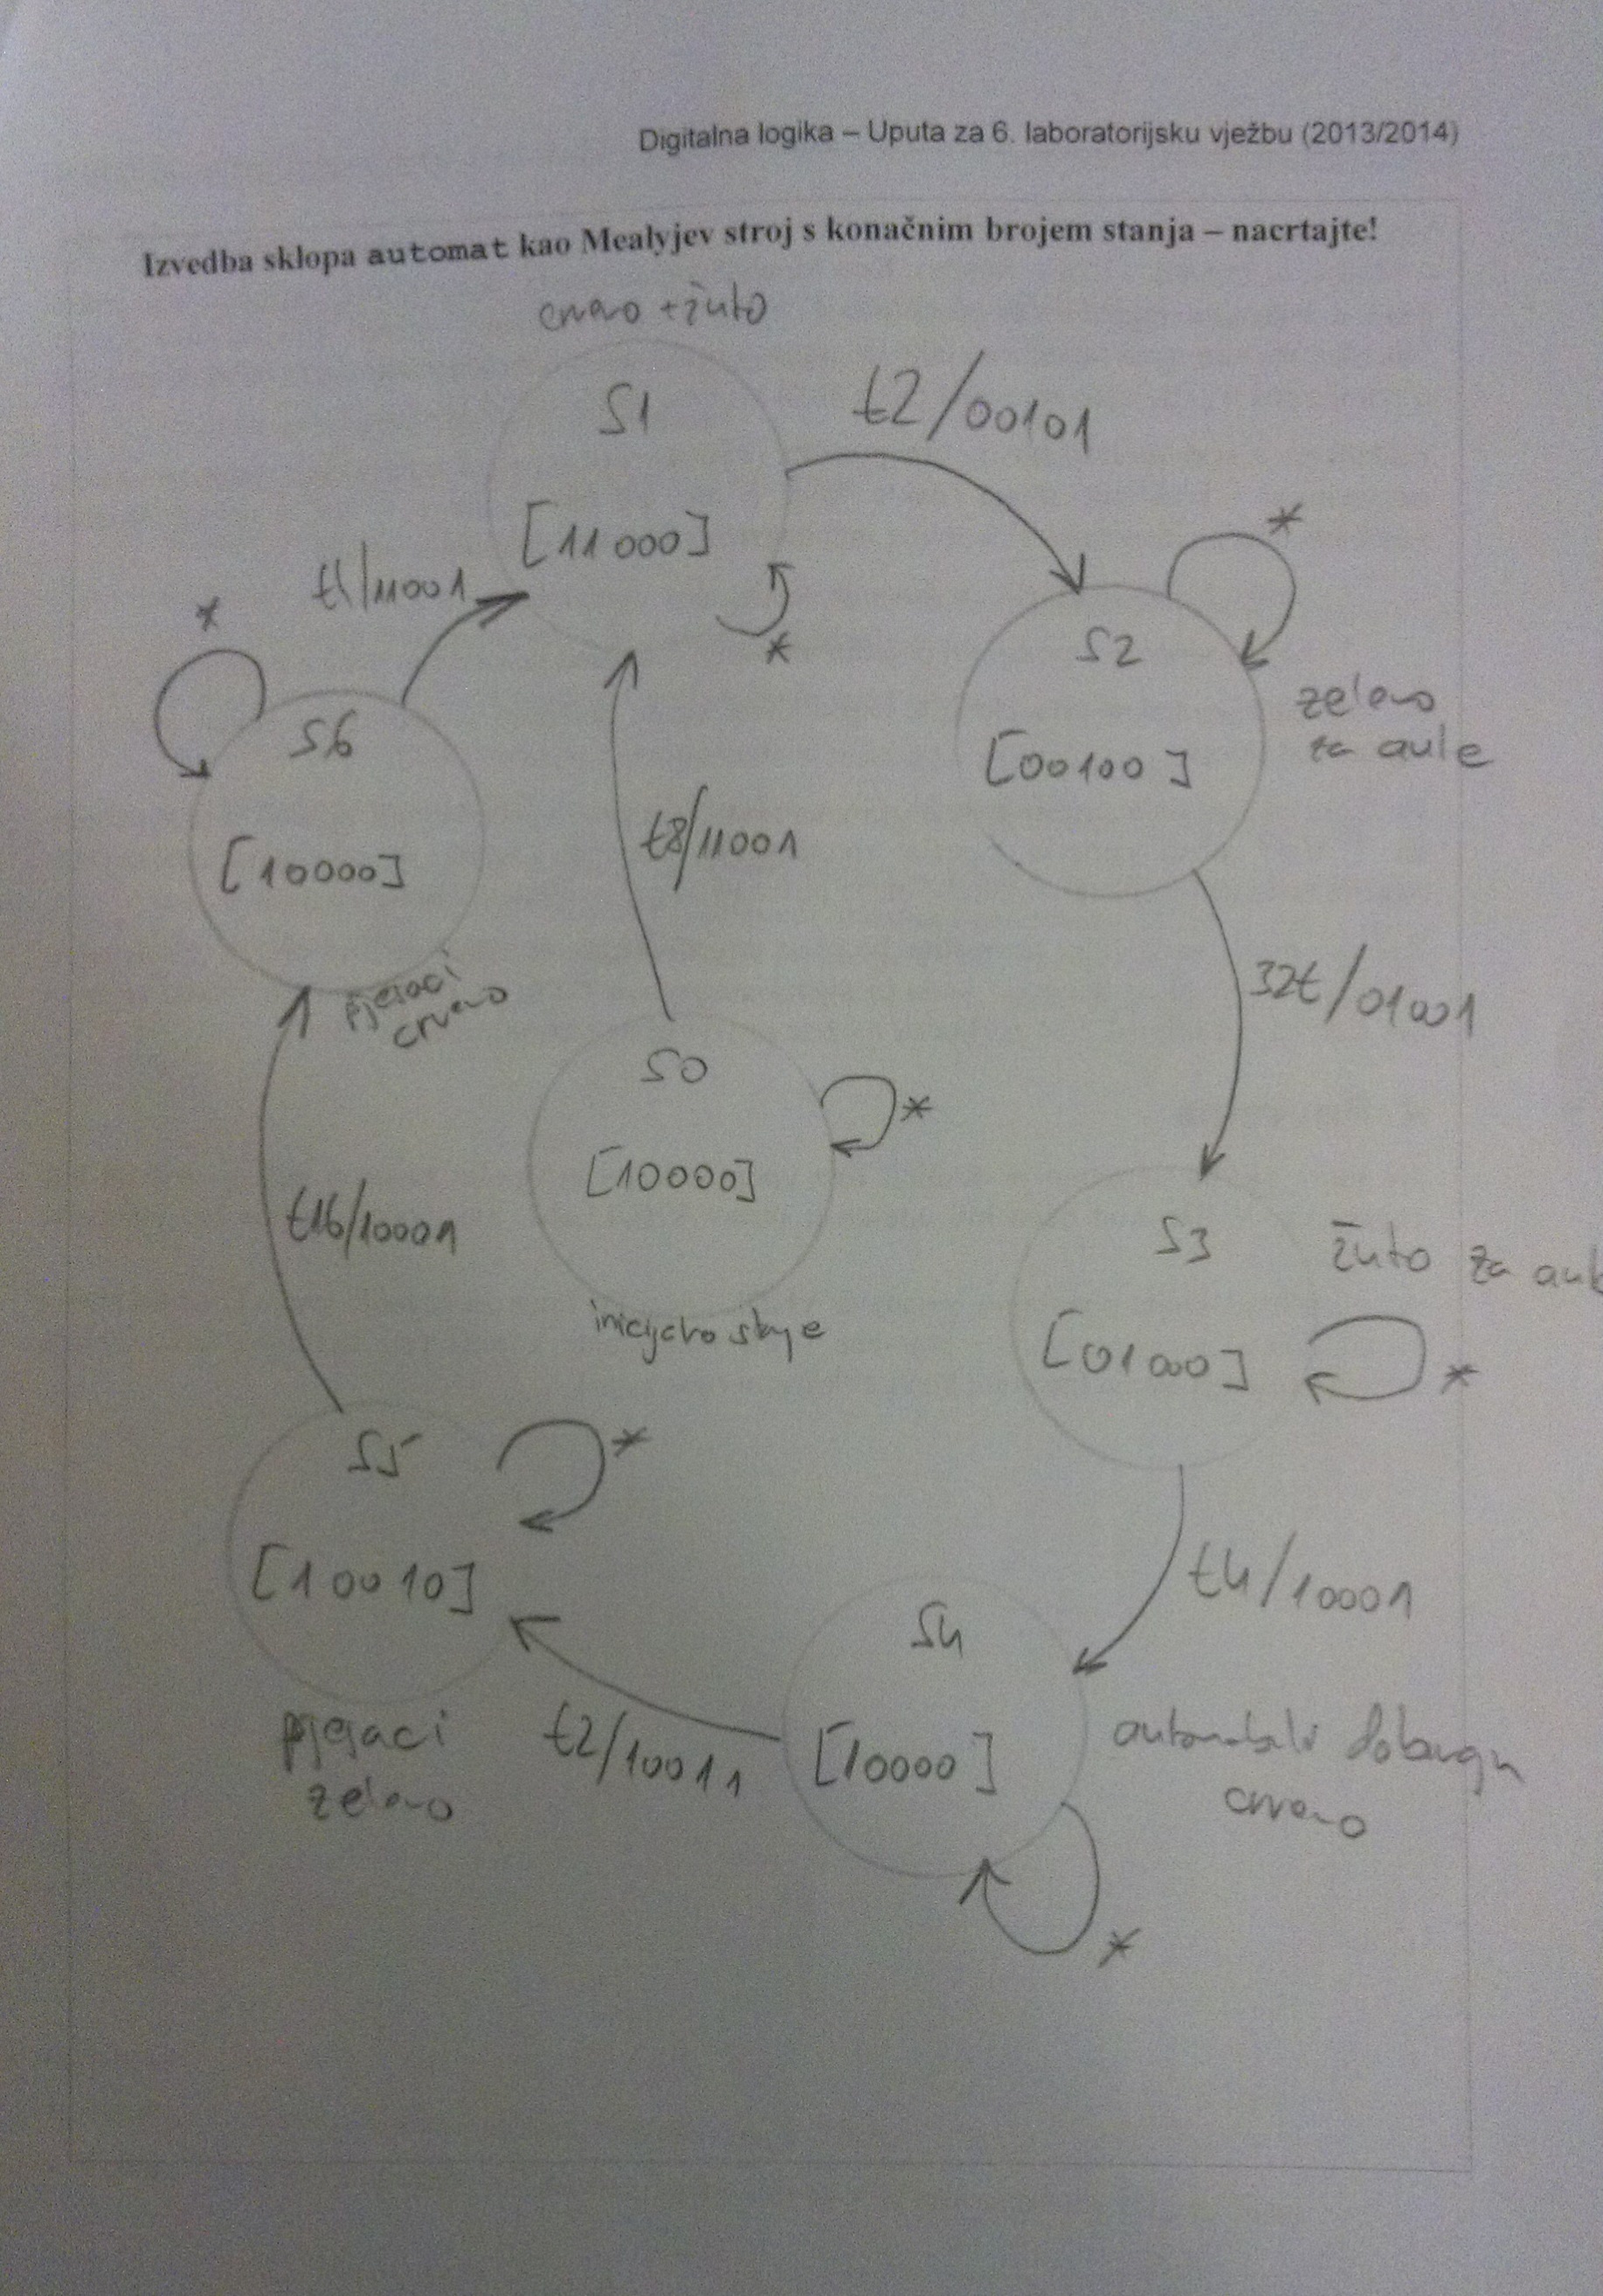 Digitalna logika – Uputa za 6. laboratorijsku vježbu (2013/2014)
Izvedba sklopa automat kao Mealyjev stroj s konačnim brojem stanja – nacrtajte!
crveno + žuto
S1
[11000]
*
t2/00101
*
S2
[00100]
zeleno
za aute
/11001
*
S6
[10000]
pješaci
crveno
t8/11001
32t/01001
S0
[10000]
*
t16/10001
S3
[01000]
*
žuto za aut
S5
[10010]
*
pješaci
zeleno
t2/10011
t4/10001
S4
[10000]
*
automobili dobivaju
crveno